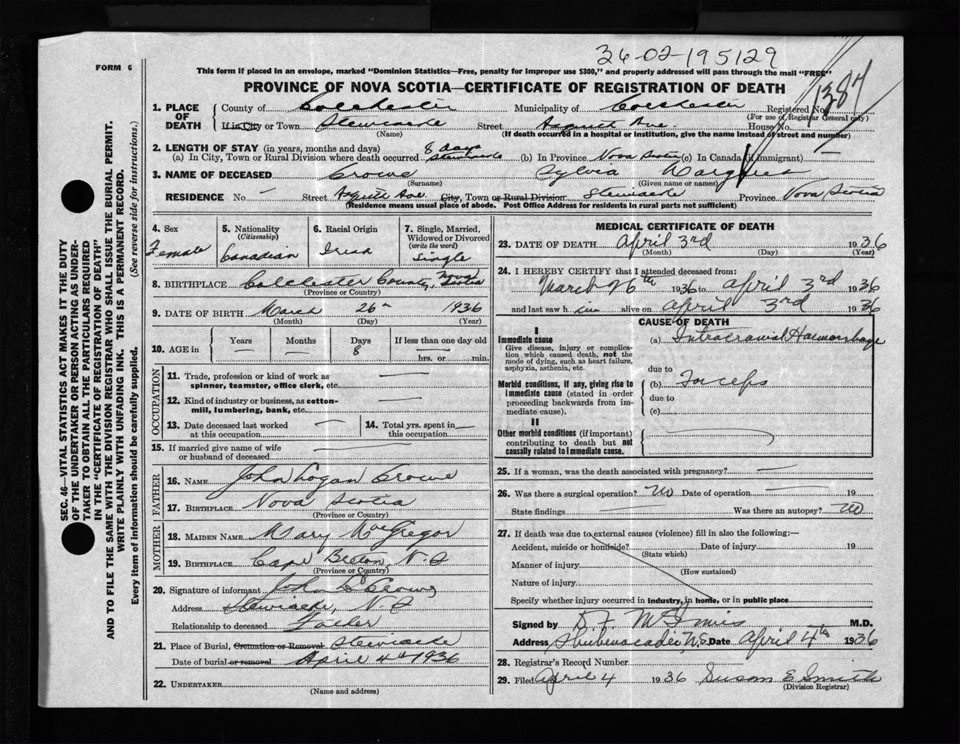 36-02-195129
FORM 6
This form if placed in an envelope, marked "Dominion Statistics—Free, penalty for improper use $300," and properly addressed will pass through the mail "FREE"
PROVINCE OF NOVA SCOTIA—CERTIFICATE OF REGISTRATION OF DEATH
1387
1. PLACE OF DEATH
County of Colchester Municipality of Colchester Registered No.
(For use of Registrar General only)
If in City or Town Stewiacke Street August Ave. House No.
(Name) (If death occurred in a hospital or institution, give the name instead of street and number)
2. LENGTH OF STAY (in years, months and days)
(a) In City, Town or Rural Division where death occurred 8 days Stewiacke (b) In Province Nova Scotia (c) In Canada (if immigrant) —
3. NAME OF DECEASED Crowe Sylvia
(Surname) (Given name or names)
RESIDENCE No — Street August Ave City, Town or Rural Division Stewiacke Province Nova Scotia
(Residence means usual place of abode. Post Office Address for residents in rural parts not sufficient)
4. Sex
Female
5. Nationality
(Citizenship)
Canadian
6. Racial Origin
Irish
7. Single, Married, Widowed or Divorced
(write the word)
Single
8. BIRTHPLACE Colchester County, Nova Scotia
(Province or Country)
9. DATE OF BIRTH March 26 1936
(Month) (Day) (Year)
10. AGE in
Years Months Days If less than one day old
— — 8 hrs. or min.
OCCUPATION
11. Trade, profession or kind of work as spinner, teamster, office clerk, etc. —
12. Kind of industry or business, as cotton-mill, lumbering, bank, etc. —
13. Date deceased last worked at this occupation —
14. Total yrs. spent in this occupation —
15. If married give name of wife or husband of deceased —
FATHER
16. NAME John Logan Crowe
17. BIRTHPLACE Nova Scotia
(Province or Country)
MOTHER
18. MAIDEN NAME Mary MacGregor
19. BIRTHPLACE Cape Breton, N.S
(Province or Country)
20. Signature of informant John L Crowe
Address Stewiacke, N.S
Relationship to deceased Father
21. Place of Burial, Cremation or Removal Stewiacke
Date of burial or removal April 4th 1936
22. UNDERTAKER
(Name and address)
MEDICAL CERTIFICATE OF DEATH
23. DATE OF DEATH April 3rd 1936
(Month) (Day) (Year)
24. I HEREBY CERTIFY that I attended deceased from:
March 26th 1936 to April 3rd 1936
and last saw h im alive on April 3rd 1936
CAUSE OF DEATH
I
Immediate cause
Give disease, injury or complication which caused death, not the mode of dying, such as heart failure, asphyxia, asthenia, etc.
(a) Intracranial Haemorrhage
due to
Morbid conditions, if any, giving rise to immediate cause (stated in order proceeding backwards from immediate cause).
(b) Forceps
due to
(c)
II
Other morbid conditions (if important) contributing to death but not causally related to immediate cause.
25. If a woman, was the death associated with pregnancy? —
26. Was there a surgical operation? no Date of operation — 19 —
State findings — Was there an autopsy? no
27. If death was due to external causes (violence) fill in also the following:—
Accident, suicide or homicide? Date of injury 19
(State which)
Manner of injury
(How sustained)
Nature of injury
Specify whether injury occurred in industry, in home, or in public place
Signed by D F McInnis M.D.
Address Shubenacadie, N.S. Date April 4th 1936
28. Registrar's Record Number
29. Filed April 4 1936 Susan E Smith
(Division Registrar)
SEC. 46—VITAL STATISTICS ACT MAKES IT THE DUTY
OF THE UNDERTAKER OR PERSON ACTING AS UNDER-
TAKER TO OBTAIN ALL THE PARTICULARS REQUIRED
IN THE "CERTIFICATE OF REGISTRATION OF DEATH"
AND TO FILE THE SAME WITH THE DIVISION REGISTRAR WHO SHALL ISSUE THE BURIAL PERMIT.
WRITE PLAINLY WITH UNFADING INK. THIS IS A PERMANENT RECORD.
Every item of information should be carefully supplied. (See reverse side for instructions.)